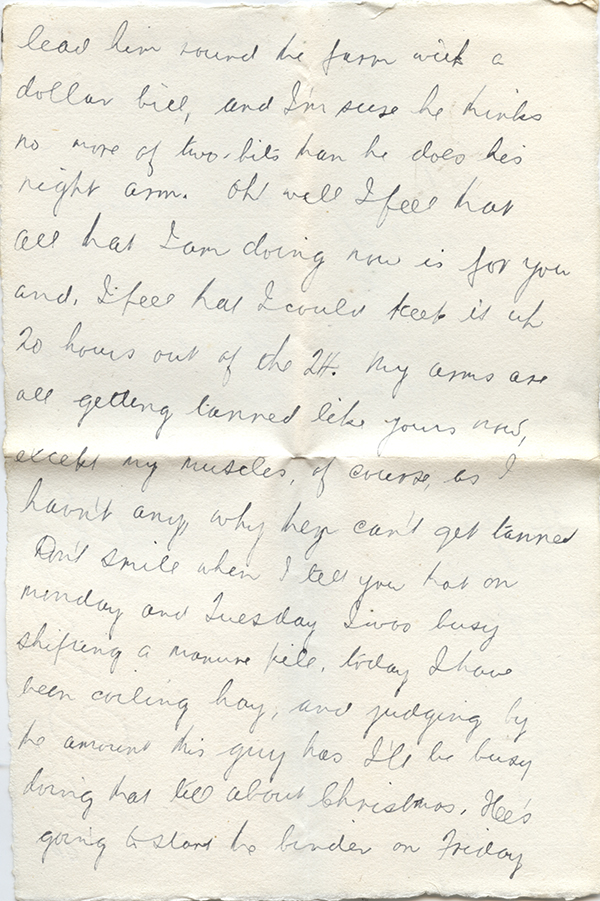 lead him round the farm with a
dollar bill, and I'm sure he thinks
no more of two-bits than he does his
right arm. Oh! well I feel that
all that I am doing now is for you
and, I feel that I could keep it up
20 hours out of the 24. My arms are
all getting tanned like yours now,
except my muscles, of course, as I
havn't any, why they can't get tanned
Don't smile when I tell you that on
monday and Tuesday I was busy
shifting a manure pile, today I have
been coiling hay, and judging by
the amount this guy has I'll be busy
doing that till about Christmas. He's
going to start the binder on Friday